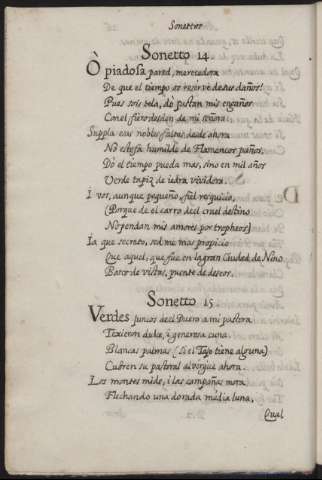 Sonettos
Sonetto 14
Ò piadosa pared, merecedora
De que el tiempo os reserve de sus daños!
Pues sois tela, dó justan mis engaños
Con el fiero desden de mi señora.
Suppla esas nobles faltas desde ahora
No estofa humilde de Flamencos paños,
Dó el tiempo pueda mas, sino en mil años
Verde tapiz de iedra vividora.
I vos, aunque pequeño, fiel resquicio,
(Porque de el carro de el cruel destino
No pendan mis amores por tropheos)
Ia que secreto, sedme mas propicio
Que aquel, que fue en la gran Ciudad de Nino
Barco de vistas, puente de deseos.
Sonetto 15
Verdes juncos de el Duero a mi pastora
Texieron dulce, i generosa cuna:
Blancas palmas (si el Tajo tiene alguna)
Cubren su pastoral alvergue ahora.
Los montes mide, i las campañas mora
Flechando una dorada media luna,
Qual